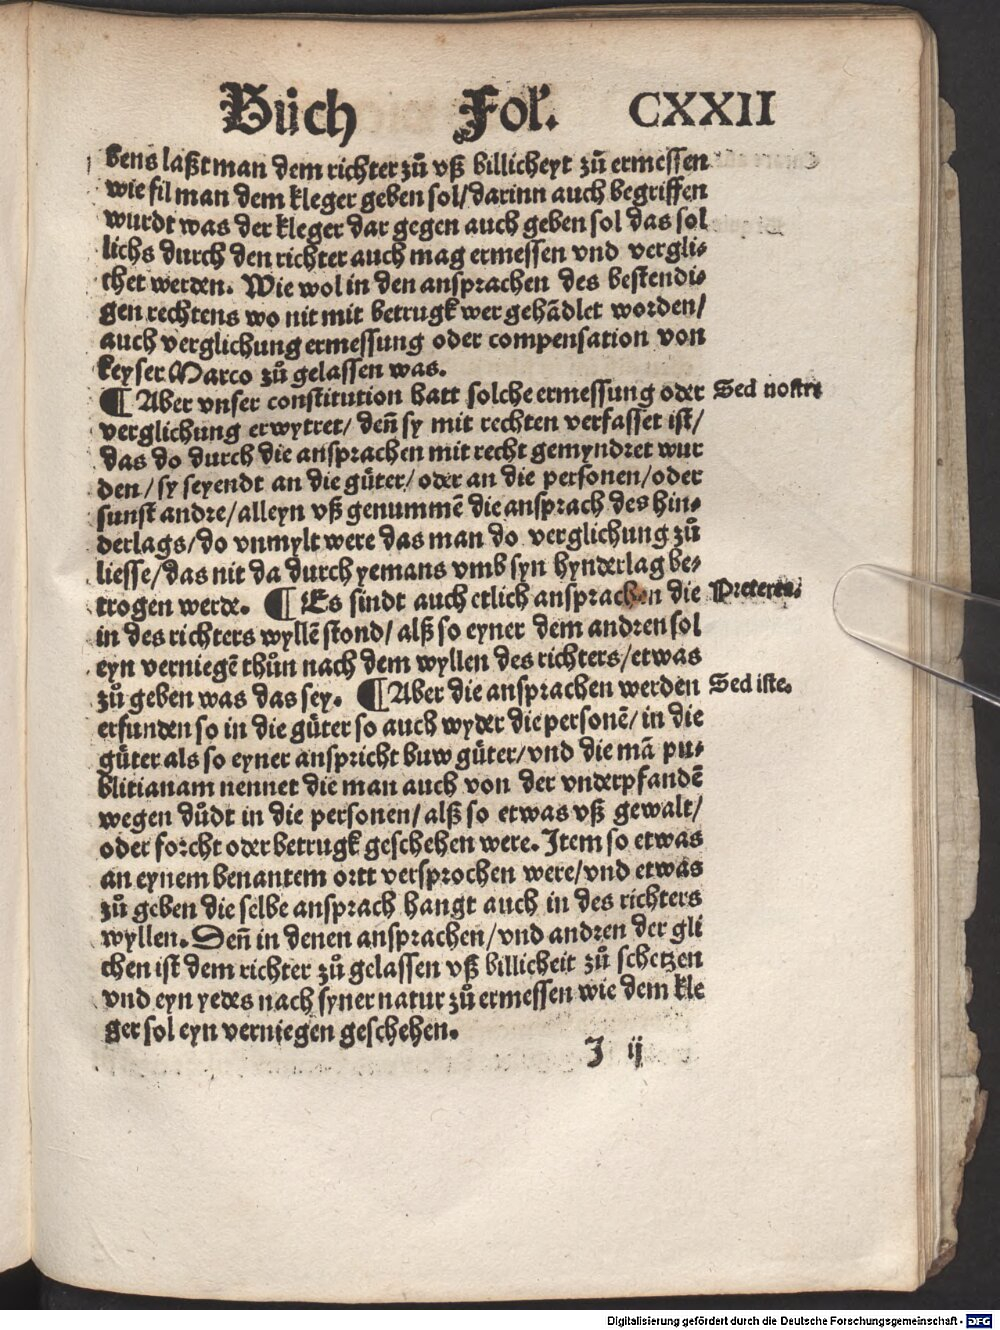 Bůch Fol'. CXXII
bens laßt man dem richter zů vß billicheyt zů ermessen
wie fil man dem kleger geben sol/darinn auch begriffen
wurdt was der kleger dar gegen auch geben sol das sol
lichs durch den richter auch mag ermessen vnd vergli⸗
chet werden. Wie wol in den ansprachen des bestendi⸗
gen rechtens wo nit mit betrugk wer gehãdlet worden/
auch verglichung ermessung oder compensation von
keyser Marco zů gelassen was.
¶ Aber vnser constitution hatt solche ermessung oder Sed nostra
verglichung erwytret/ deñ sy mit rechten verfasset ist/
das do durch die ansprachen mit recht gemyndret wur
den/ sy seyendt an die gůter/ oder an die personen/oder
sunst andre/alleyn vß genummẽ die ansprach des hin⸗
derlags/do vnmylt were das man do verglichung zů
liesse/das nit da durch yemans vmb syn hynderlag be⸗
trogen werde. ¶ Es sindt auch etlich ansprachen die Preterea.
in des richters wyllẽ stond/ alß so eyner dem andren sol
eyn verniegẽ thůn nach dem wyllen des richters/etwas
zů geben was das sey. ¶ Aber die ansprachen werden Sed iste.
erfunden so in die gůter so auch wyder die personẽ/ in die
gůter als so eyner anspricht buw gůter/vnd die mã pu⸗
blitianam nennet die man auch von der vnderpfandẽ
wegen důdt in die personen/ alß so etwas vß gewalt/
oder forcht oder betrugk geschehen were. Item so etwas
an eynem benantem ortt versprochen were/vnd etwas
zů geben die selbe ansprach hangt auch in des richters
wyllen. Deñ in denen ansprachen/vnd andren der gli
chen ist dem richter zů gelassen vß billicheit zů schetzen
vnd eyn yedes nach syner natur zů ermessen wie dem kle
ger sol eyn verniegen geschehen.
J ij
Digitalisierung gefördert durch die Deutsche Forschungsgemeinschaft - DFG